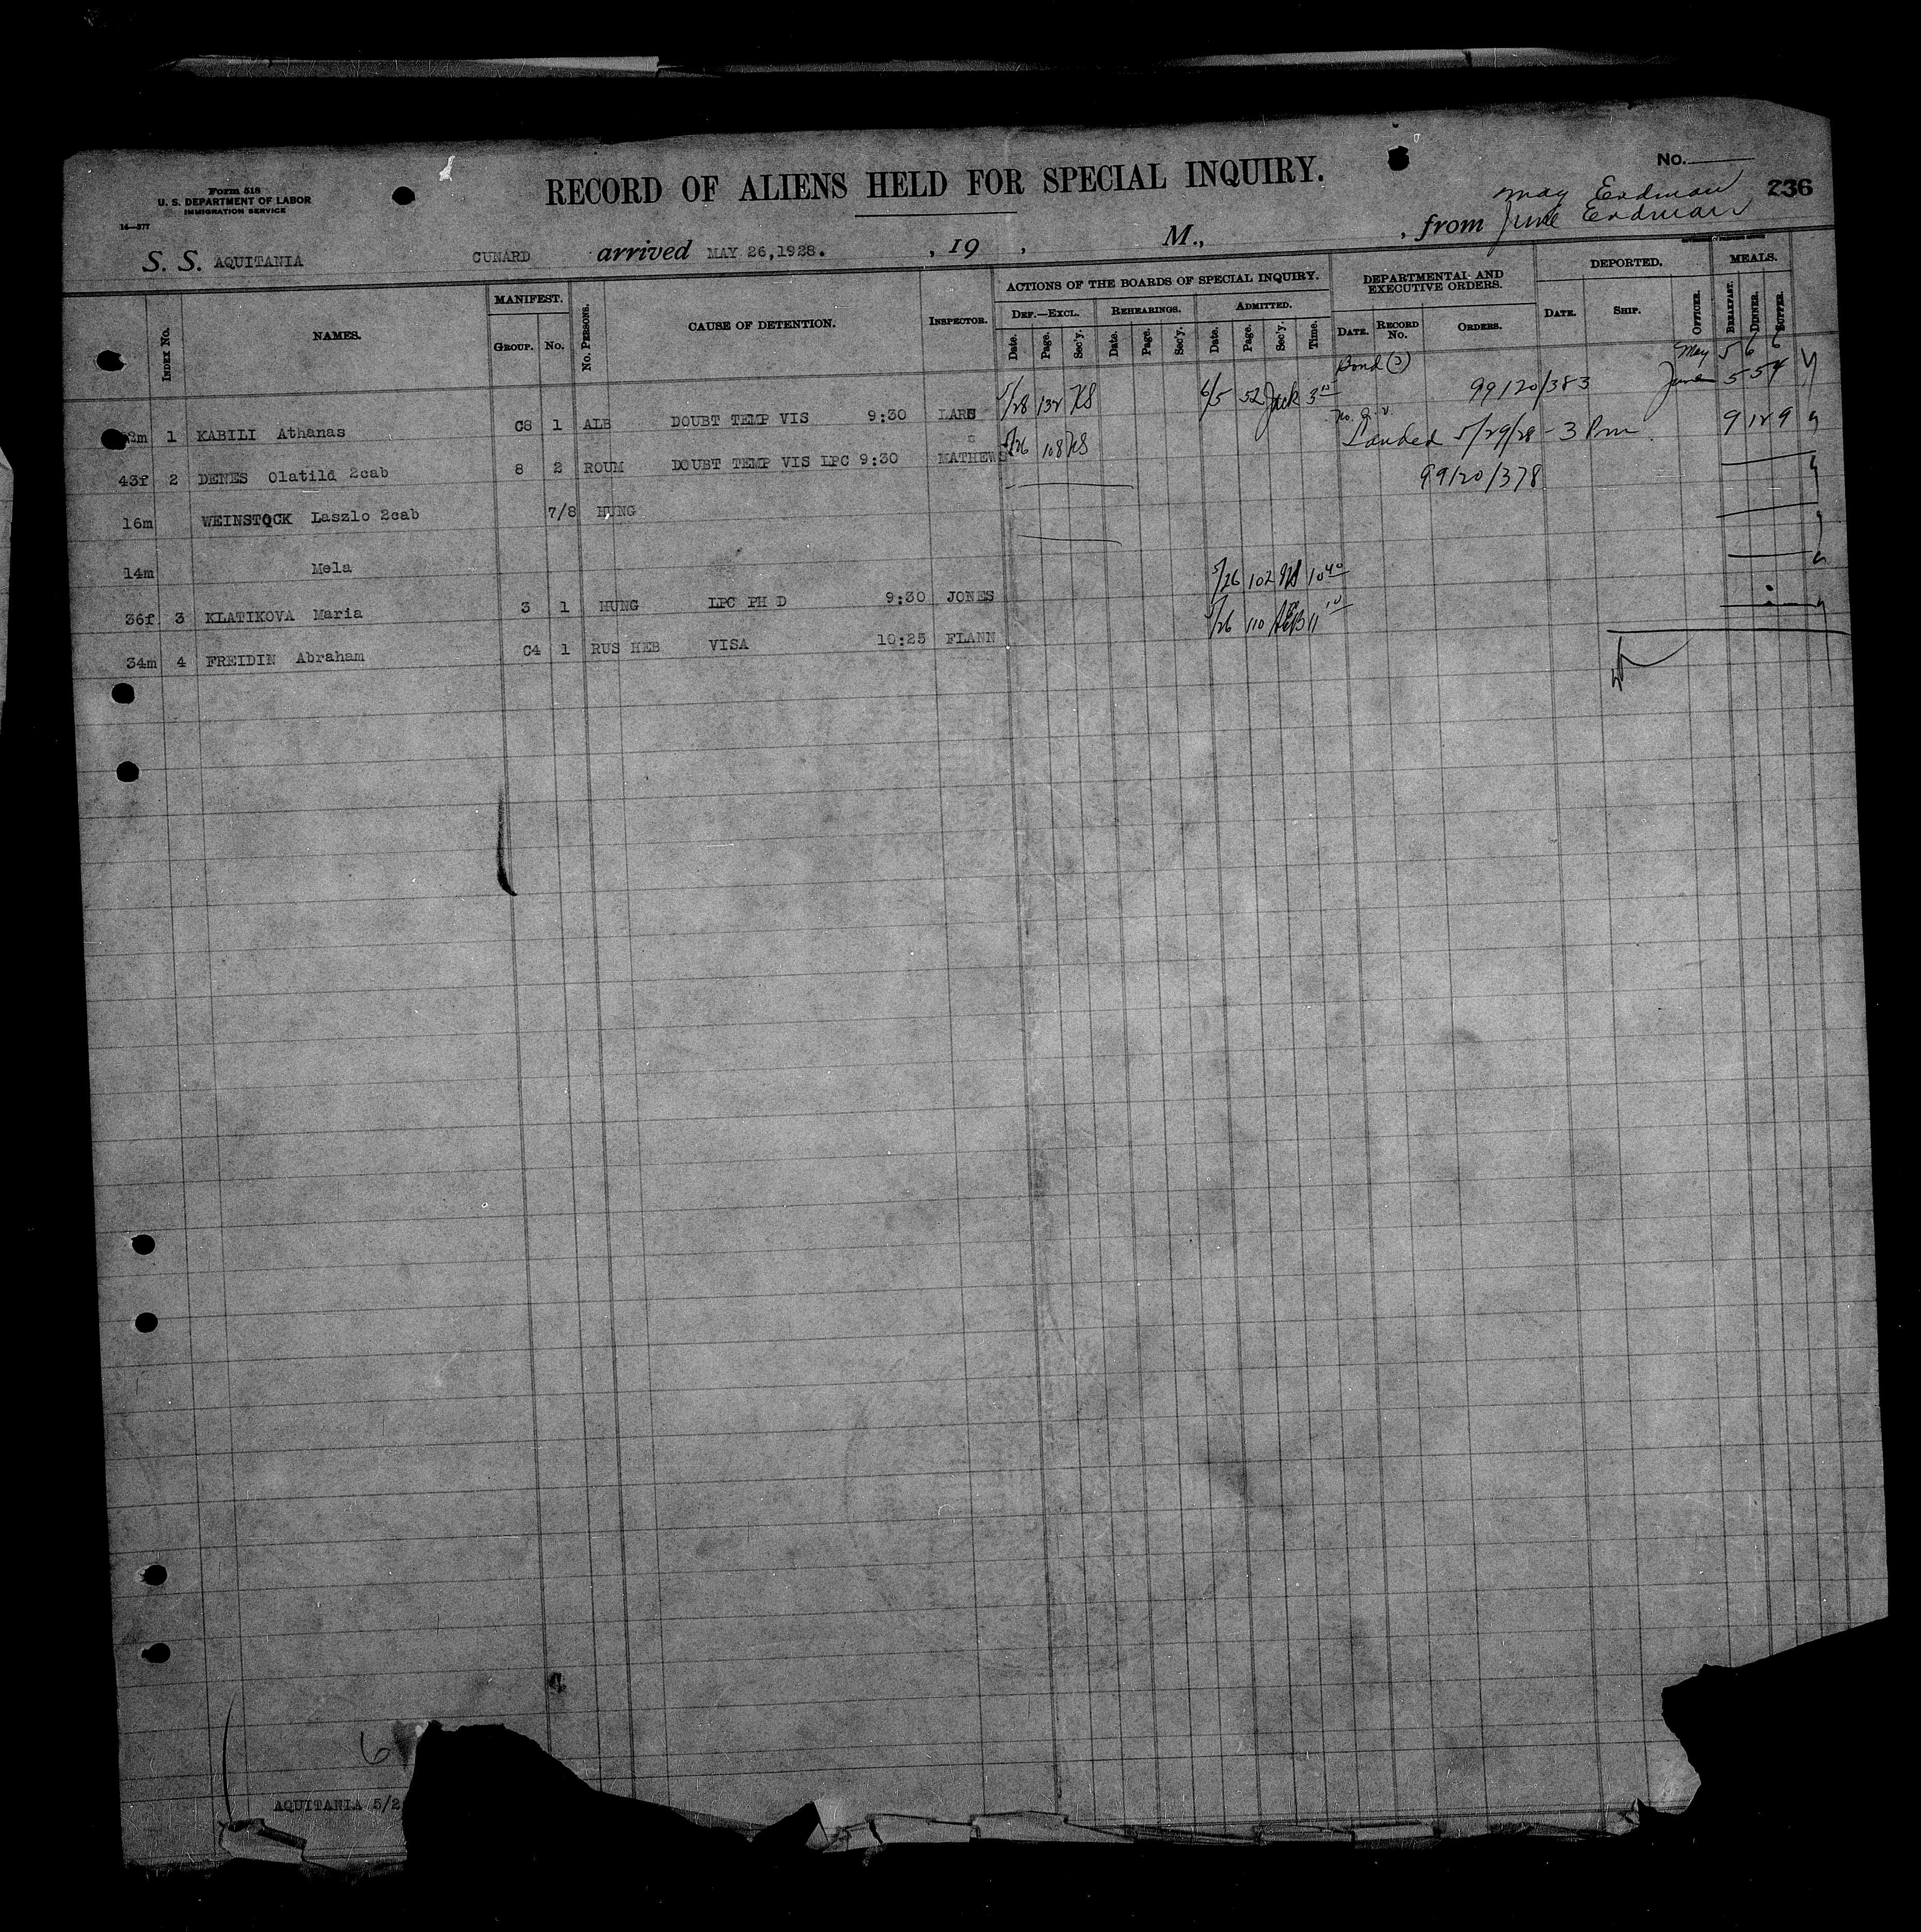 Form 518
U. S. DEPARTMENT OF LABOR
IMMIGRATION SERVICE
14—377
RECORD OF ALIENS HELD FOR SPECIAL INQUIRY.
No.
236
May Erdman
S. S. AQUITANIA CUNARD arrived MAY 26,1928. , 19 , M., , from June Erdman
INDEX NO. NAMES. MANIFEST. GROUP. NO. NO. PERSONS. CAUSE OF DETENTION. INSPECTOR.
ACTIONS OF THE BOARDS OF SPECIAL INQUIRY. DEF.—EXCL. Date. Page. Sec'y. REHEARINGS. Date. Page. Sec'y. ADMITTED. Date. Page. Sec'y. Time.
DEPARTMENTAL AND EXECUTIVE ORDERS. DATE. RECORD NO. ORDERS.
DEPORTED. DATE. SHIP. OFFICER.
MEALS. BREAKFAST. DINNER. SUPPER.
Bond May 5 6 6
2m 1 KABILI Athanas C8 1 ALB DOUBT TEMP VIS 9:30 LARS 5/28 132 KS 6/5 52 Jack 3 15 99120/383 June 5 5 4
43f 2 DENES Olatild 2cab 8 2 ROUM DOUBT TEMP VIS LPC 9:30 MATHEWS 5/26 108 KS Landed 5/29/28 - 3 Pm 9 12 9
99120/378
16m WEINSTOCK Laszlo 2cab 7/8 HUNG
14m Mela
36f 3 KLATIKOVA Maria 3 1 HUNG LPC PH D 9:30 JONES 5/26 102 10 40
34m 4 FREIDIN Abraham C4 1 RUS HEB VISA 10:25 FLANN 5/26 110 11 10
6
AQUITANIA 5/2